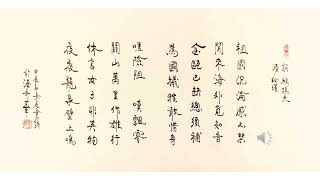 鷓鴣天
秋瑾
祖國沉淪感不禁
閒來海外覓知音
金甌已缺總須補
為國犧牲敢惜身
嗟險阻 嘆飄零
關山萬里作雄行
休言女子非英物
夜夜龍泉壁上鳴